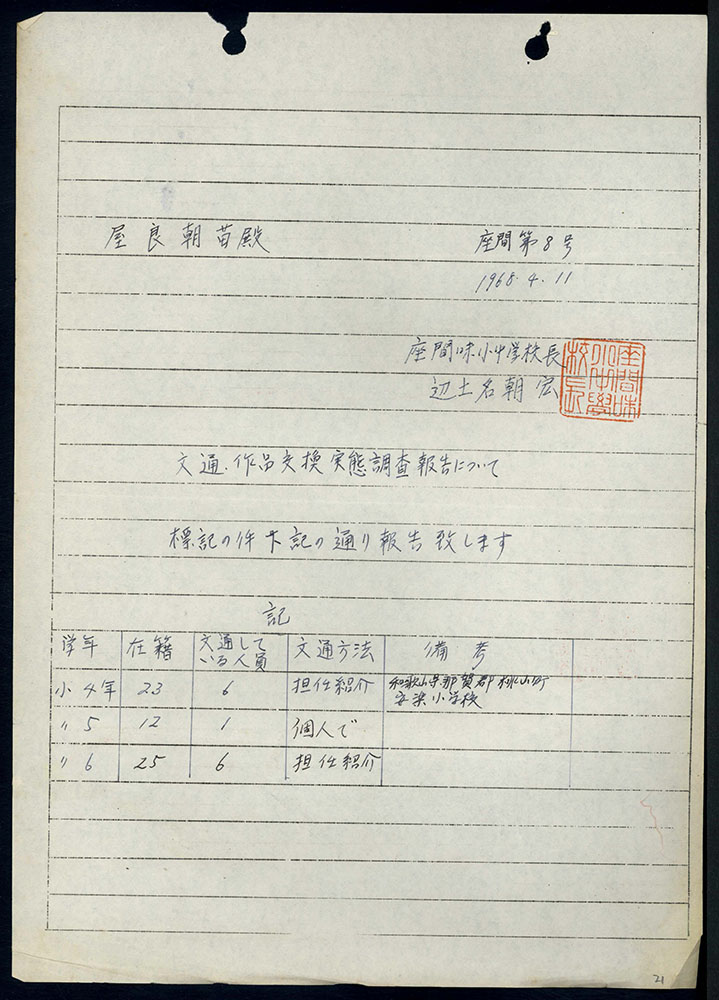 屋良朝苗殿
座間第8号
1968.4.11
座間味小中学校長
辺土名朝宏
座間味小中学校長
文通、作品交換実態調査報告について
標記の件下記の通り報告致します
記
学年 在籍 文通している人員 文通方法 備考
小4年 23 6 担任紹介 和歌山県那賀郡桃山町
安楽小学校
〃5 12 1 個人で
〃6 25 6 担任紹介
21